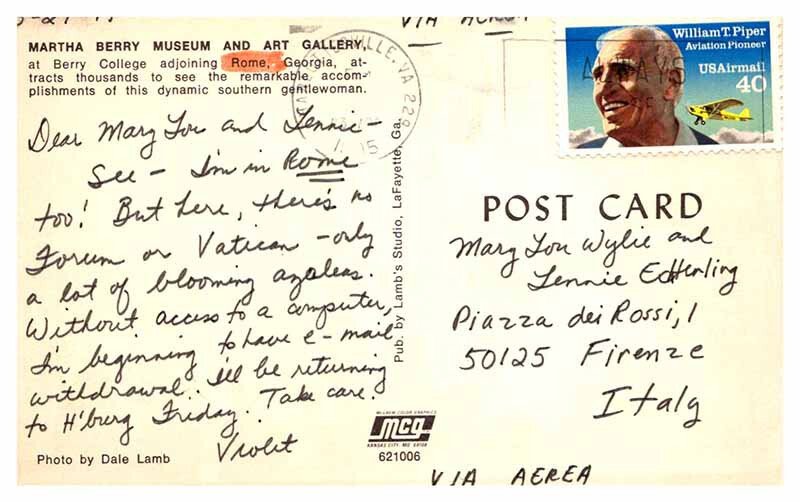 VIA AEREA
MARTHA BERRY MUSEUM AND ART GALLERY,
at Berry College adjoining Rome, Georgia, at-
tracts thousands to see the remarkable accom-
plishments of this dynamic southern gentlewoman.
Dear Mary Lou and Lennie –
See – I'm in Rome
too! But here, there's no
Forum or Vatican – only
a lot of blooming azaleas.
Without access to a computer,
I'm beginning to have e-mail
withdrawal. I'll be returning
to H'burg Friday. Take care.
Violet
Photo by Dale Lamb
Pub. by Lamb's Studio, LaFayette, Ga.
McGREW COLOR GRAPHICS
mcg
KANSAS CITY, MO. 64108
621006
William T. Piper
Aviation Pioneer
USAirmail
40
POST CARD
Mary Lou Wylie and
Lennie Echterling
Piazza dei Rossi, 1
50125 Firenze
Italy
VIA AEREA